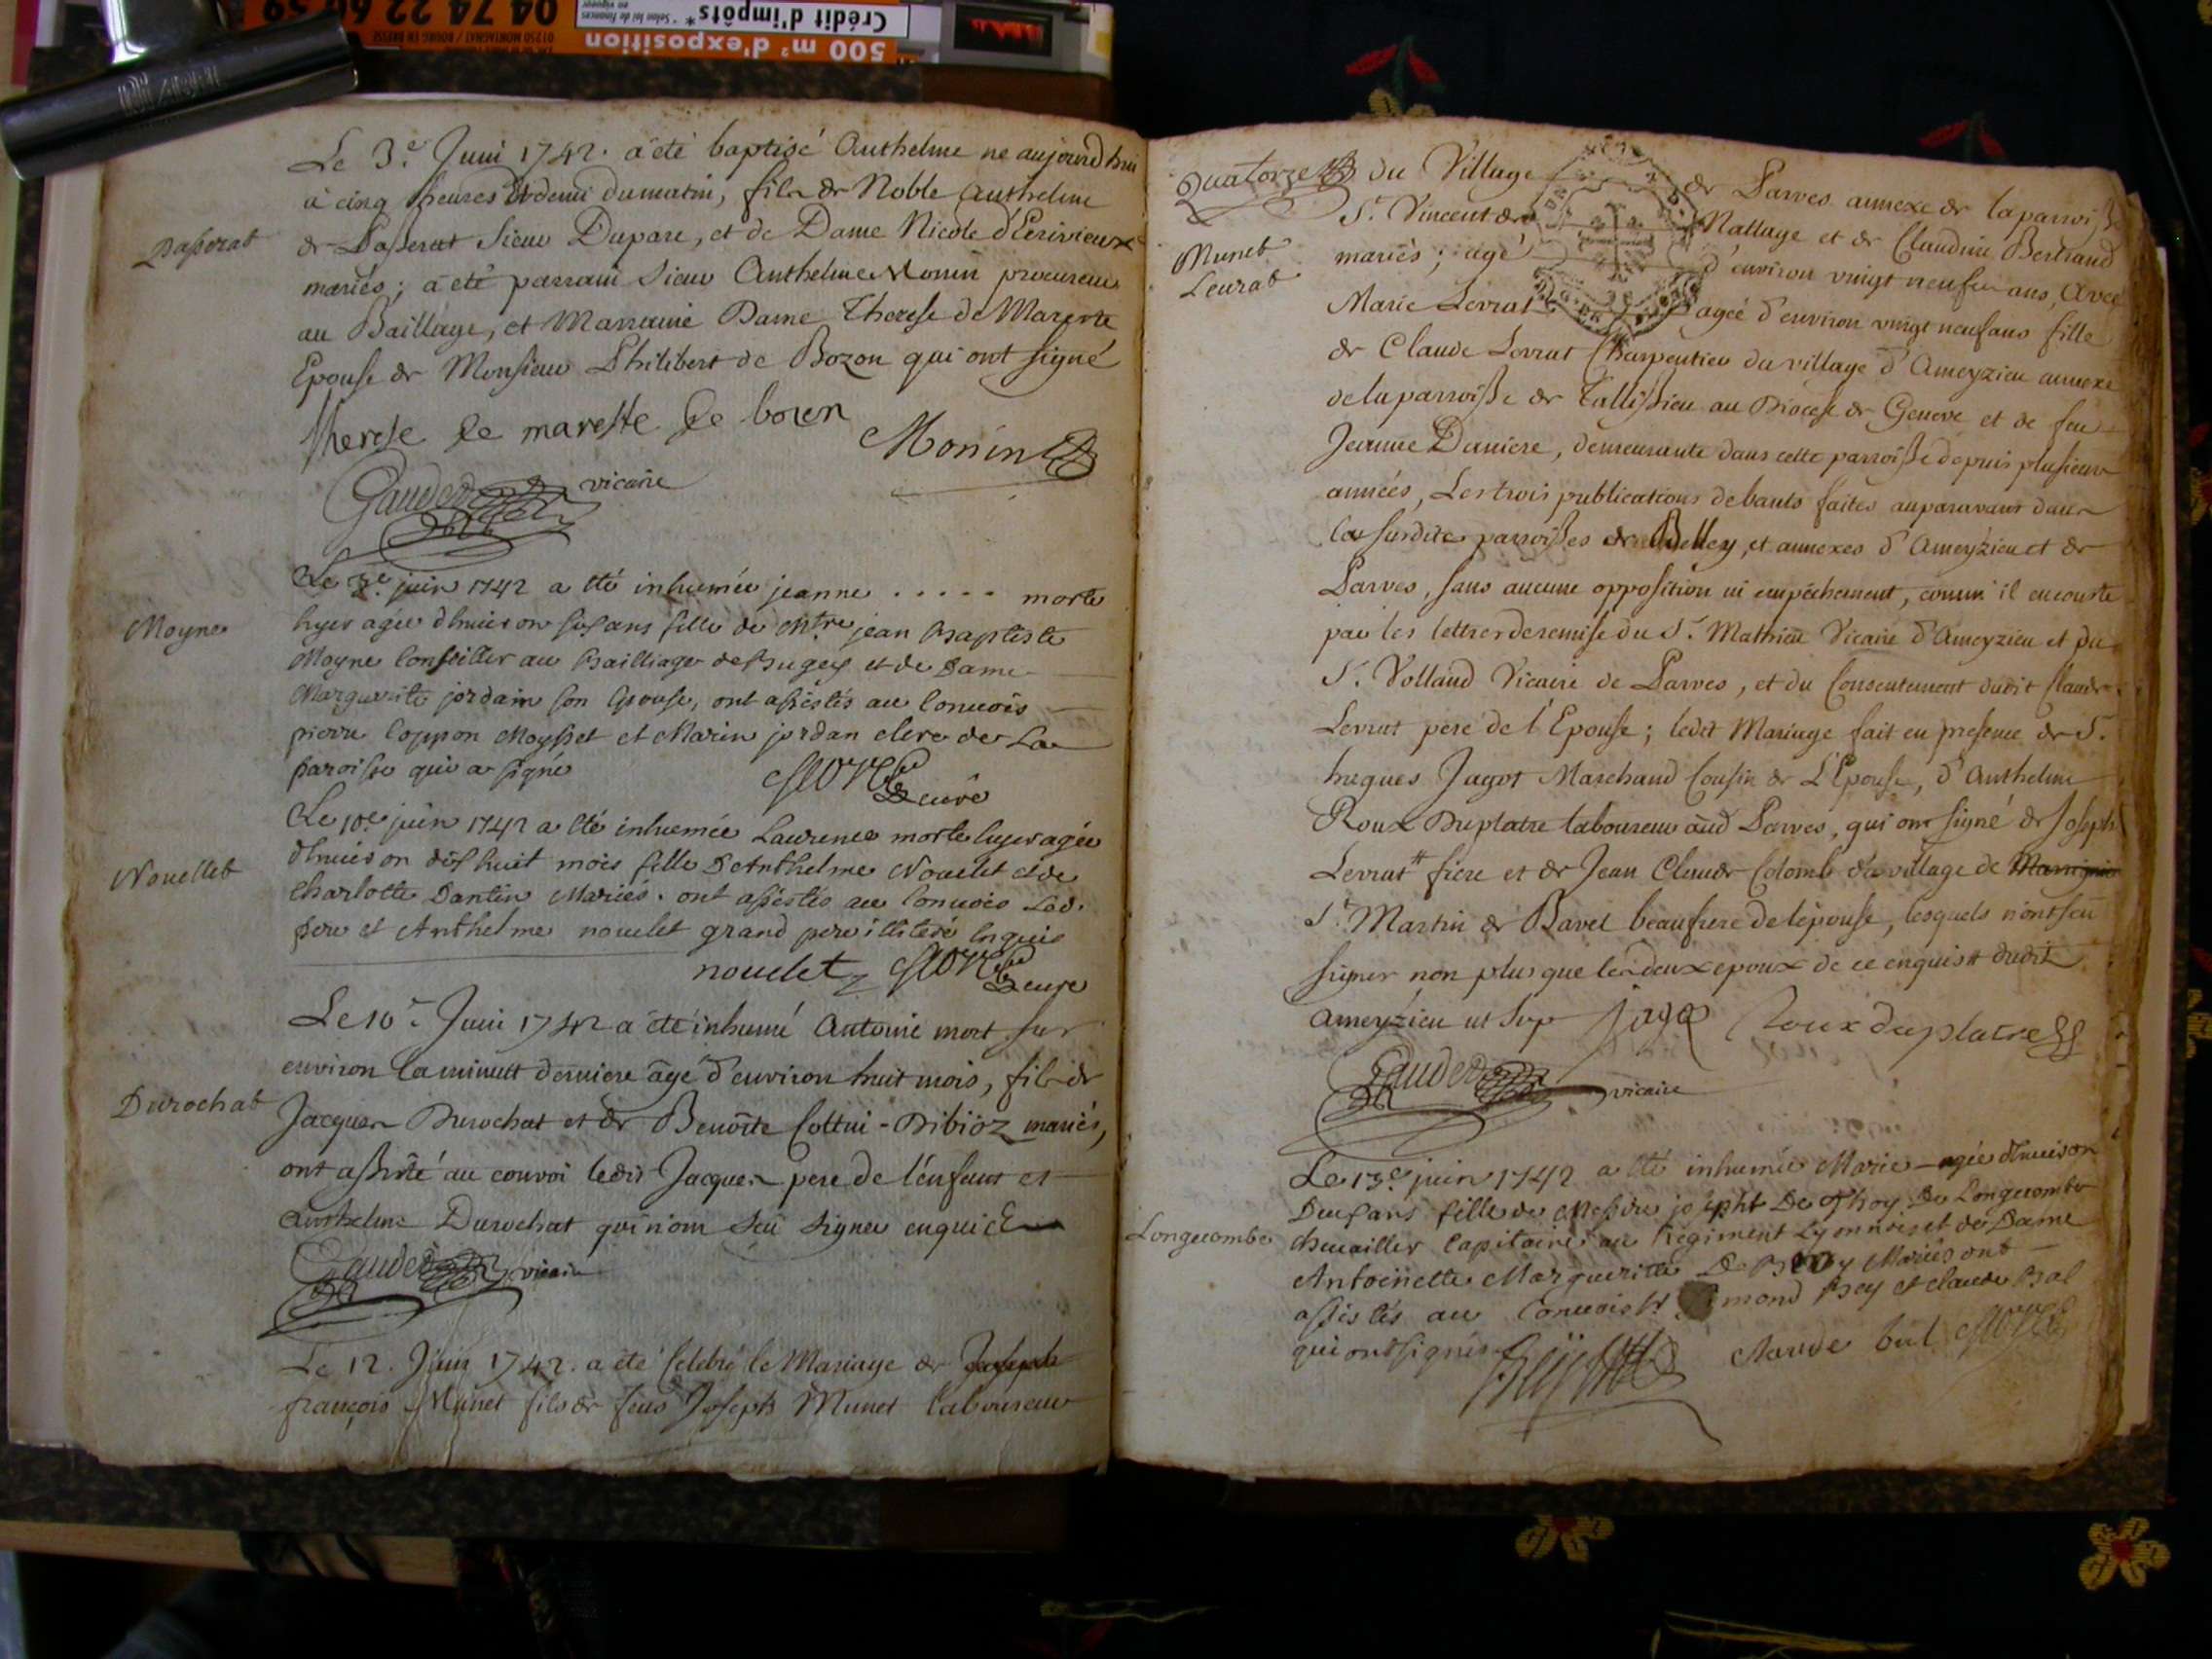 500 m² d'exposition
Crédit d'impôts*
* Selon loi de finances
en vigueur
01250 MONTAGNAT / BOURG EN BRESSE
04 74 22 60 59
Le 3.e Juin 1742. a été baptisé Anthelme ne aujourd'hui
à cinq heures et demi du matin, fils de Noble Anthelme
Passerat
de Passerat Sieur Duparc, et de Dame Nicole d'Erivieux
mariés; a été parrain Sieur Anthelme Monin procureur
au Baillage, et Marraine Dame Therese de Mareste
Epouse de Monsieur Philibert de Bozon qui ont signé
Therese de mareste de bozon
Monin
Gaudet vicaire
Le 3.e juin 1742 a été inhumée jeanne ..... morte
Moyne
hyer agée d'huiron six ans fille de Mtre jean Baptiste
Moyne Conseiller au Bailliage de Bugey et de Dame
Marguerite jordain son Epouse, ont assistés au Conuois
pierre Coppon Moysset et Marin jordan clerc de La
paroisse qui a signé
curé
Le 10e juin 1742 a été inhumée Laurence morte hyer agée
Nouellet
d'huiron dix huit mois fille D'Anthelme Nouelet et de
Charlotte Dantin Mariés. ont assistés au Conuois Led.
pere et Anthelme nouelet grand pere illiteré Enquis
nouelet
curé
Le 10.e Juin 1742 a été inhumé Antoine mort sur
environ la minuit derniere âgé d'environ huit mois, fils de
Durochat
Jacques Durochat et de Benoîte Cottin-Dibioz mariés,
ont assisté au convoi ledit Jacques pere de l'enfant et
Anthelme Durochat qui n'ont sçû signer enquis
Gaudet vicaire
Le 12. Juin 1742. a été Celebré le Mariage de Joseph
françois Munet fils de feus Joseph Munet laboureur
Quatorze
du Village de Parves annexe de la parroisse
St. Vincent de Nattage et de Claudine Bertrand
Munet
Leurat
mariés; agé d'environ vingt neuf ans, Avec
Marie Levrat agée d'environ vingt neuf ans fille
de Claude Levrat Charpentier du village d'Ameyzieu annexe
de la parroisse de Tallissieu au Diocese de Geneve et de feu
Jeanne Daniere, demeurante dans cette parroisse depuis plusieurs
années, Les trois publications de bants faites auparavant dans
les susdites parroisses de Belley, et annexes d'Ameyzieu et de
Parves, sans aucune opposition ni empéchement, comm' il en conste
par les lettres de remise du S. Mathieu Vicaire d'Ameyzieu et du
S. Volland Vicaire de Parves, et du Consentement dudit Claude
Levrat pere de l'Epouse; ledit Mariage fait en presence de S.
hugues Jagot Marchand Cousin de L'Epouse, d'Anthelme
Roux Duplatre laboureur aud Parves, qui ont signé de Joseph
Levrat # frere et de Jean Claude Colomb du village de Marignieu
St Martin de Bavel beaufrere de l'épouse, lesquels n'ont sçu
signer non plus que les deux epoux de ce enquis # dudit
Ameyzieu ut sup
Jagot
Roux duplatre
Gaudet vicaire
Le 13e juin 1742 a été inhumée Marie agée d'huiron
Deux ans fille de Messire joseph De Thoy De Longecombe
Longecombe
cheuallier Capitaine au Regiment Lyonnois et de Dame
Antoinette Margueritte De Mariés ont
assistés au Conuois Bey et claude Bal
qui ont signés
claude bal